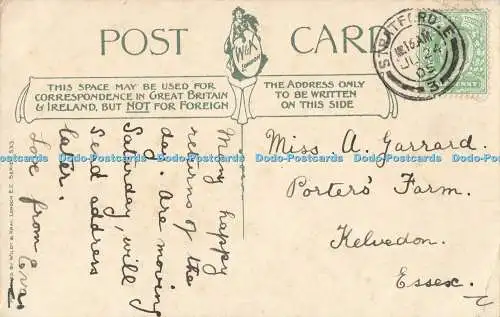 POST CARD
W&K
LONDON
THIS SPACE MAY BE USED FOR
CORRESPONDENCE IN GREAT BRITAIN
& IRELAND, BUT NOT FOR FOREIGN
THE ADDRESS ONLY
TO BE WRITTEN
ON THIS SIDE
STRATFORD. E
JU 24
05
3
Many happy
returns of the
day. Are moving
Saturday, will
send address
later.
Love from Eva
Miss A. Garrard.
Porters' Farm.
Kelvedon.
Essex.
WILDT & KRAY, LONDON E.C.
Dodo-Postcards Dodo-Postcards Dodo-Postcards Dodo-Postcards Dodo-Postcards